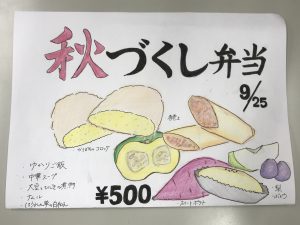 秋づくし弁当
9/25
かぼちゃコロッケ
春巻き
・ゆかりご飯
・中華スープ
・大豆とひじきの煮物
¥500
スイートポテト
梨
ぶどう